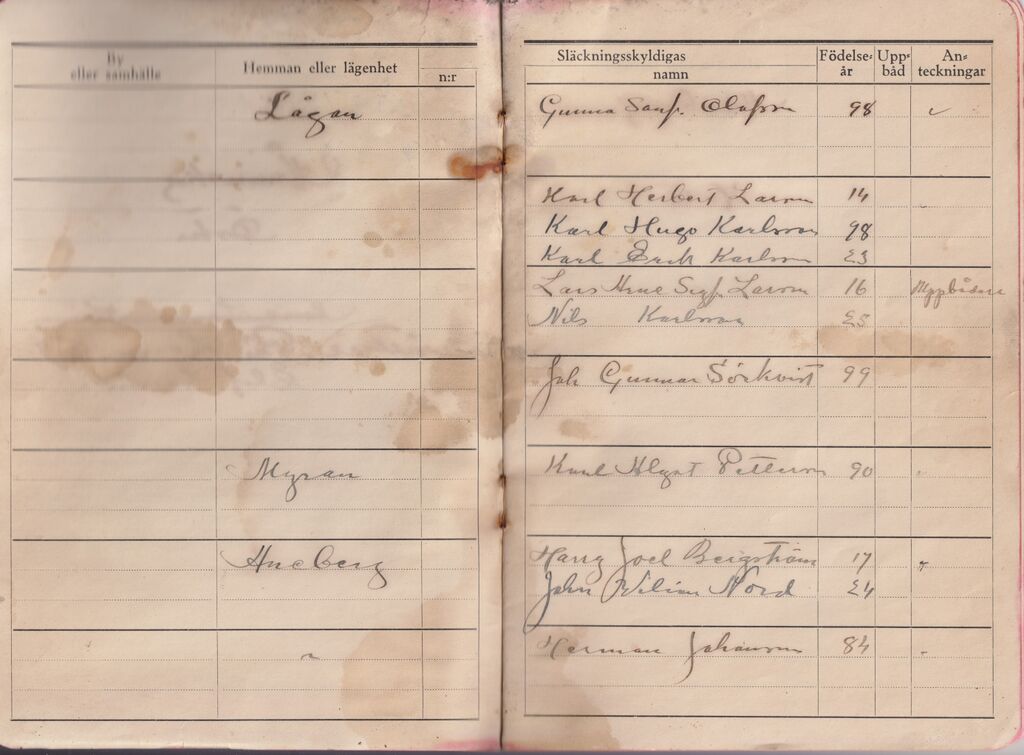 By
eller samhälle
Hemman eller lägenhet
n:r
Släckningsskyldigas
namn
Födelse-
år
Upp-
båd
An-
teckningar
Lågan Gunna Olofsson 98
Karl Herbert Larson 14
Karl Hugo Karlsson 98
Karl Erik Karlsson 23
Lars Larson 16 Uppbådare
Nils Karlsson 25
Joh Gunnar Sörkvist 99
Myran Karl Algot Petterson 90
Harry Joel Bergström 17
John Nord 24
" Herman Johansson 84